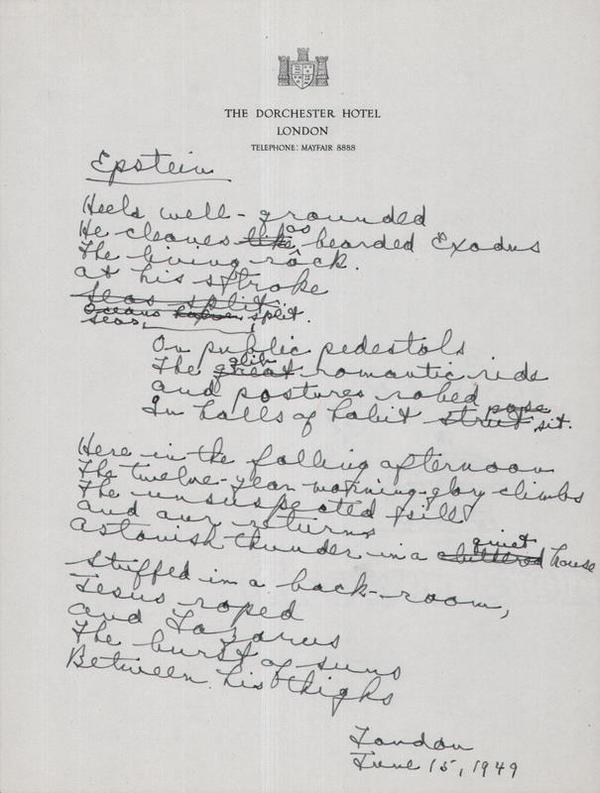 THE DORCHESTER HOTEL
LONDON
TELEPHONE: MAYFAIR 8888
Epstein
Heels well-grounded
He cleaves like as bearded Exodus
The living rock.
at his stroke
Seas split.
Oceans split.
Seas,
On public pedestals
The great glib romantic rids
and postures robed pose
In halls of habit strut sit.
Here in the falling afternoon
The twelve-year morning-glory climbs
The unsuspected sill
and our returns
Astonish thunder in a cluttered quiet house
Stuffed in a back-room,
Jesus roped
and Lazarus
The burst of suns
Between his thighs
London
June 15, 1949